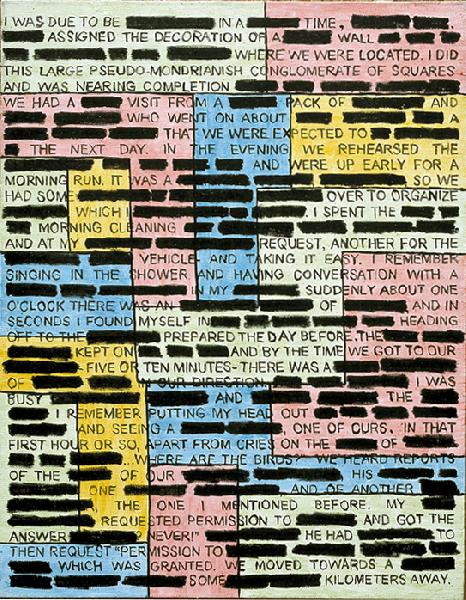 I WAS DUE TO BE IN A TIME,
ASSIGNED THE DECORATION OF A WALL
WHERE WE WERE LOCATED. I DID
THIS LARGE PSEUDO-MONDRIANISH CONGLOMERATE OF SQUARES
AND WAS NEARING COMPLETION
WE HAD A VISIT FROM A PACK OF AND
WHO WENT ON ABOUT
THAT WE WERE EXPECTED TO
THE NEXT DAY. IN THE EVENING WE REHEARSED THE
AND WERE UP EARLY FOR A
MORNING RUN. IT WAS A SO WE
HAD SOME OVER TO ORGANIZE
WHICH I I SPENT THE
MORNING CLEANING
AND AT MY REQUEST, ANOTHER FOR THE
VEHICLE AND TAKING IT EASY. I REMEMBER
SINGING IN THE SHOWER, AND HAVING CONVERSATION WITH A
IN MY SUDDENLY ABOUT ONE
O'CLOCK THERE WAS AN OF AND IN
SECONDS I FOUND MYSELF IN HEADING
OFF TO THE PREPARED THE DAY BEFORE. THE
KEPT ON AND BY THE TIME WE GOT TO OUR
-FIVE OR TEN MINUTES- THERE WAS A
OF IN OUR DIRECTION. I WAS
BUSY AND THE
I REMEMBER PUTTING MY HEAD OUT
AND SEEING A ONE OF OURS. IN THAT
FIRST HOUR OR SO, APART FROM CRIES ON THE OF
...WHERE ARE THE BIRDS?" WE HEARD REPORTS
OF THE OF OUR HIS
ONE AND OF ANOTHER
THE ONE I MENTIONED BEFORE. MY
REQUESTED PERMISSION TO AND GOT THE
ANSWER NEVER!" HE HAD TO
THEN REQUEST "PERMISSION TO
WHICH WAS GRANTED. WE MOVED TOWARDS A
SOME KILOMETERS AWAY.